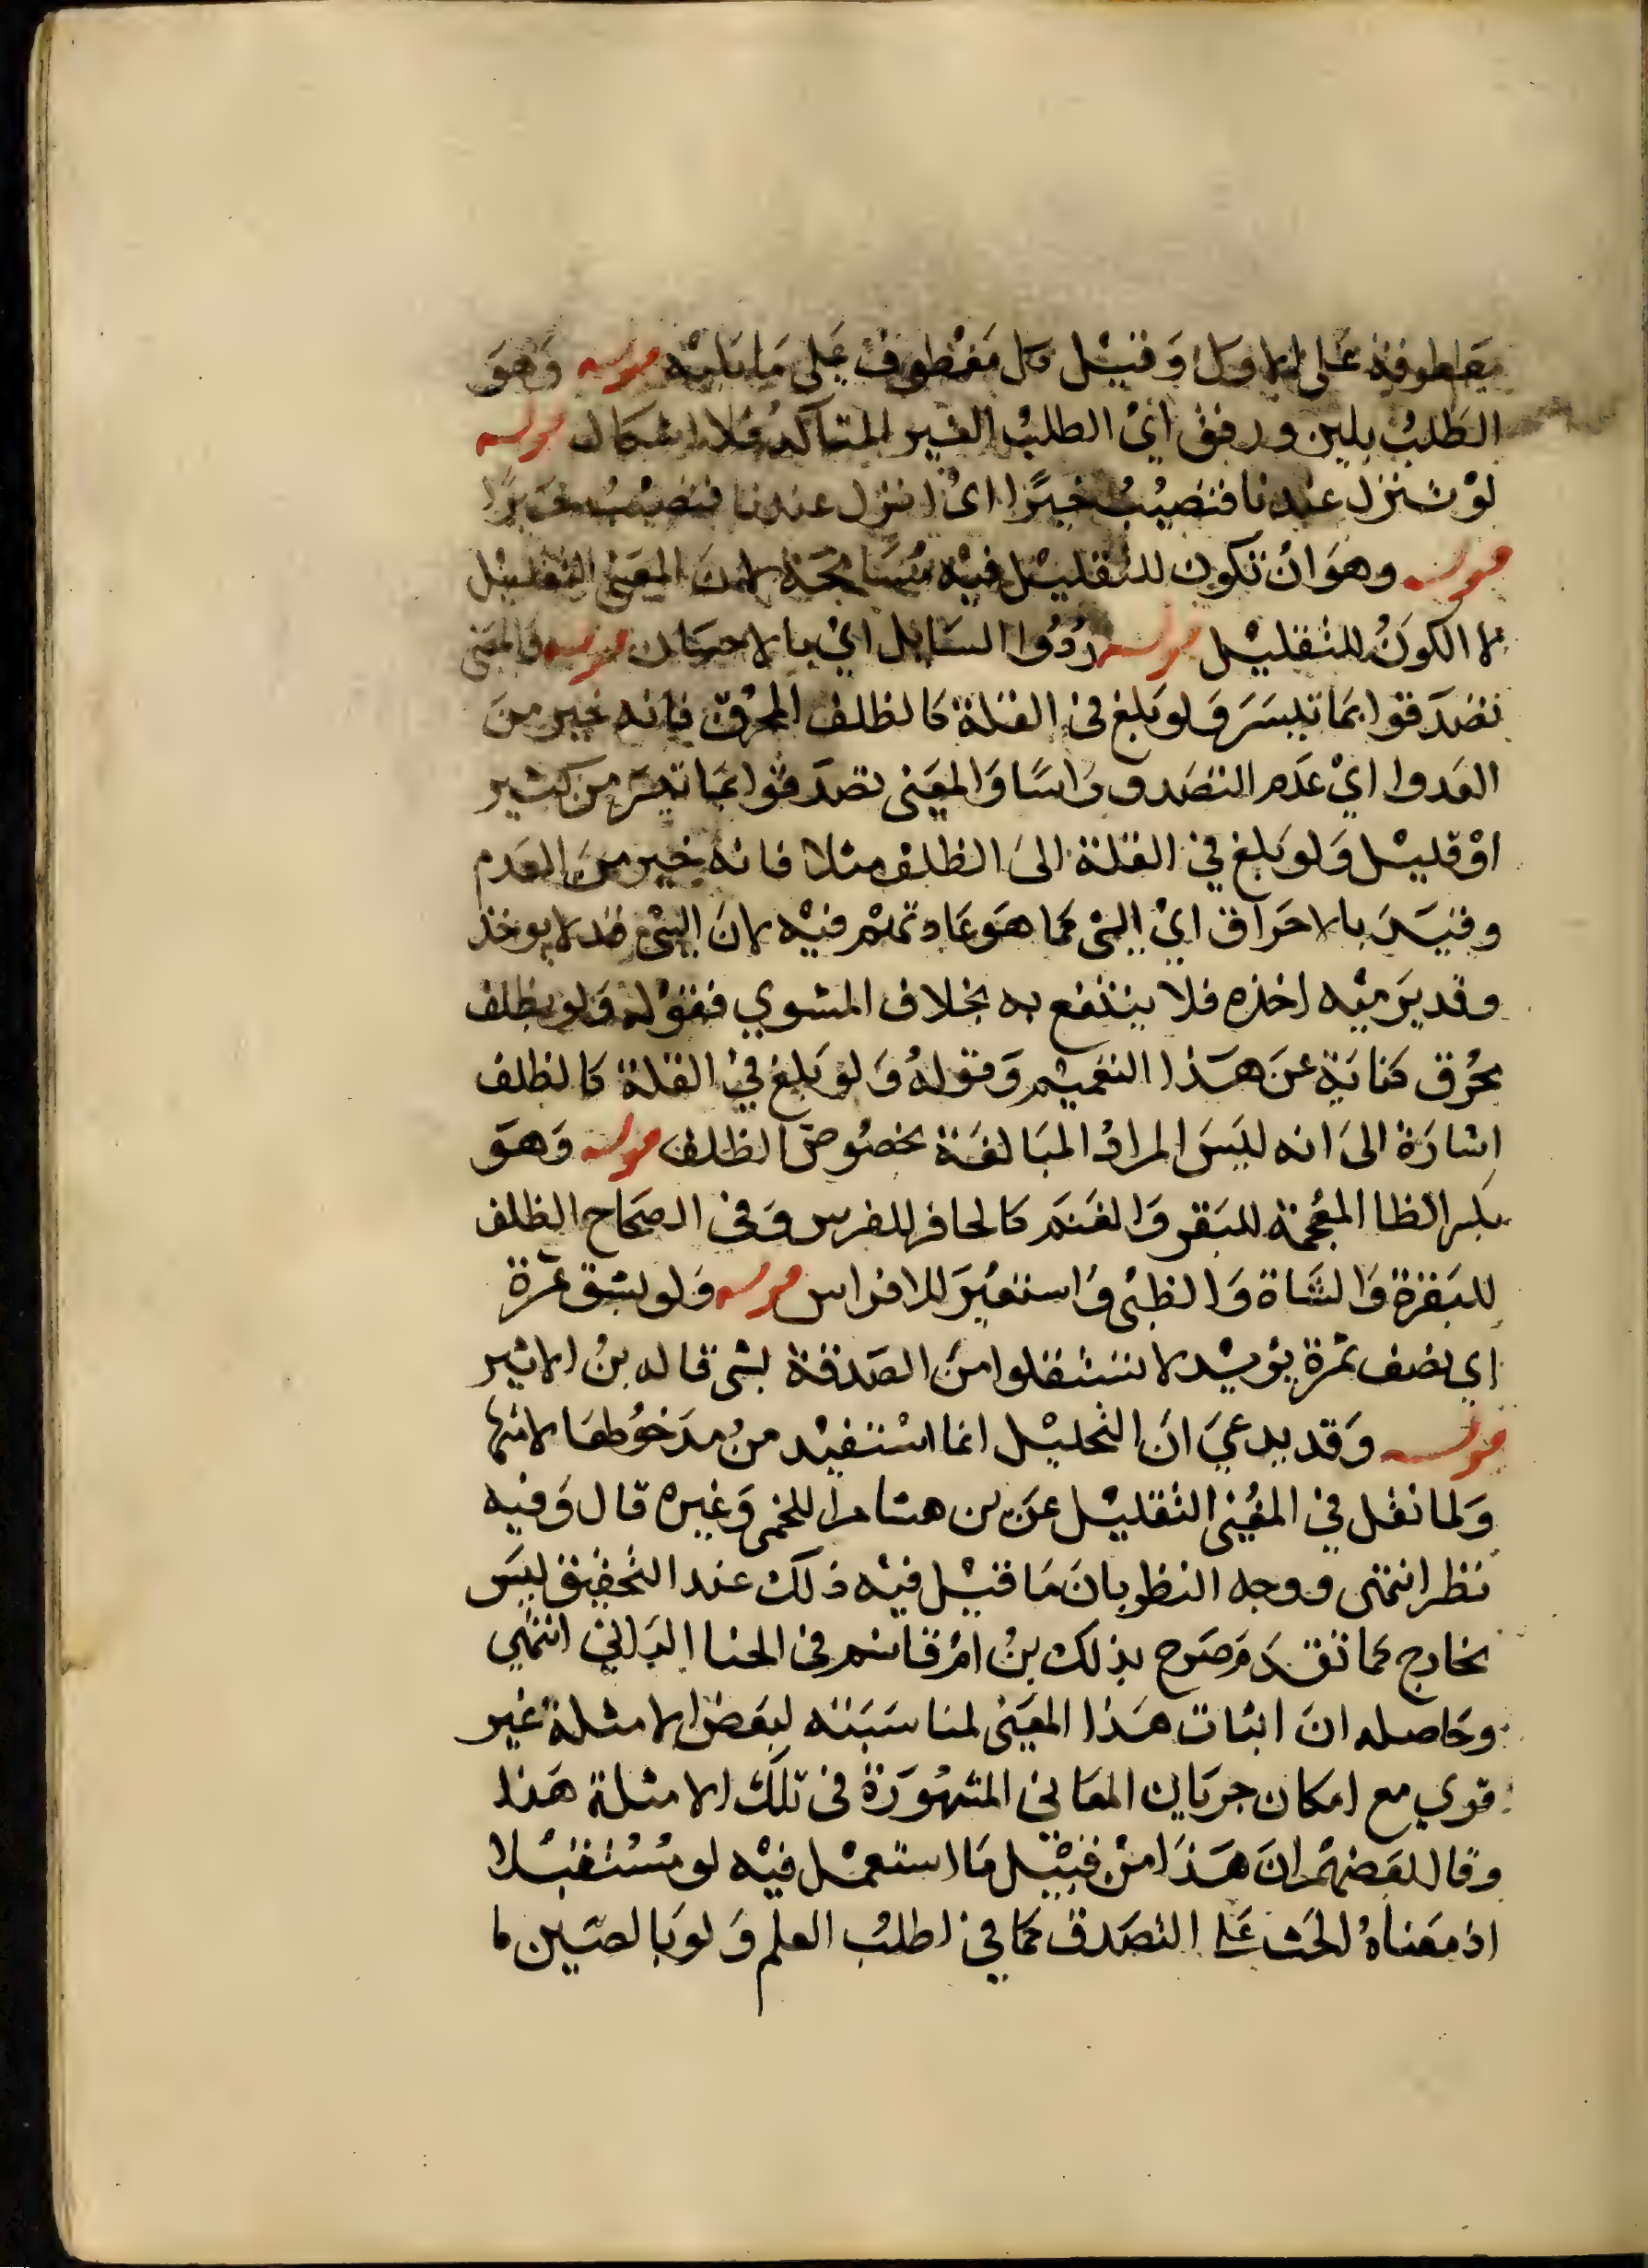 معطوفة على الاول وقيل كل معطوف على ما يليه قوله وهو
الطلب بلين ورفق اي الطلب الغير المتاكد فلا اشكال قوله
لو تنزل عندنا فتصيب خيرا اي انزل عندنا فتصيب خيرا
قوله وهو ان تكون للتقليل فيه مسامحة لان المعنى التقليل
لا الكون للتقليل قوله ردوا السايل اي بالاحسان قوله والمعنى
تصدقوا بما تيسر ولو بلغ في القلة كالظلف المحرق فانه خير من
العدم اي عدم التصدق راسا والمعنى تصدقوا بما تيسر من كثير
او قليل ولو بلغ في القلة الى الظلف مثلا فانه خير من العدم
وقيد بالاحراق اي الشي كما هو عادتهم فيه لان النيء قد لا يوخذ
وقد يرميه اخذه فلا ينتفع به بخلاف المشوي فقوله ولو بظلف
محرق كناية عن هذا التعميم وقوله ولو بلغ في القلة كالظلف
اشارة الى انه ليس المراد المبالغة بخصوص الظلف قوله وهو
بكسر الظا المعجمة للبقر والغنم كالحافر للفرس وفي الصحاح الظلف
للبقرة والشاة والظبى واستعير للافراس قوله ولو بشق تمرة
اي نصف تمرة يريد لا تستقلوا من الصدقة بشي قاله بن الاثير
قوله وقد يدعي ان التقليل انما استفيد من مدخولها لانها
ولما نقل في المغنى التقليل عن بن هشام اللخمى وغيره قال وفيه
نظر انتهى ووجه النظر بان ما قيل فيه ذلك عند التحقيق ليس
بخارج عما تقدم صرح بذلك بن ام قاسم في الجنا الداني انتهي
وحاصله ان اثبات هذا المعنى لمناسبته لبعض الامثلة غير
قوي مع امكان جريان المعاني المشهورة في تلك الامثلة هذا
وقال بعضهم ان هذا من قبيل ما استعمل فيه لو مستقبلا
اذ معناه الحث على التصدق كما في اطلب العلم ولو بالصين لا